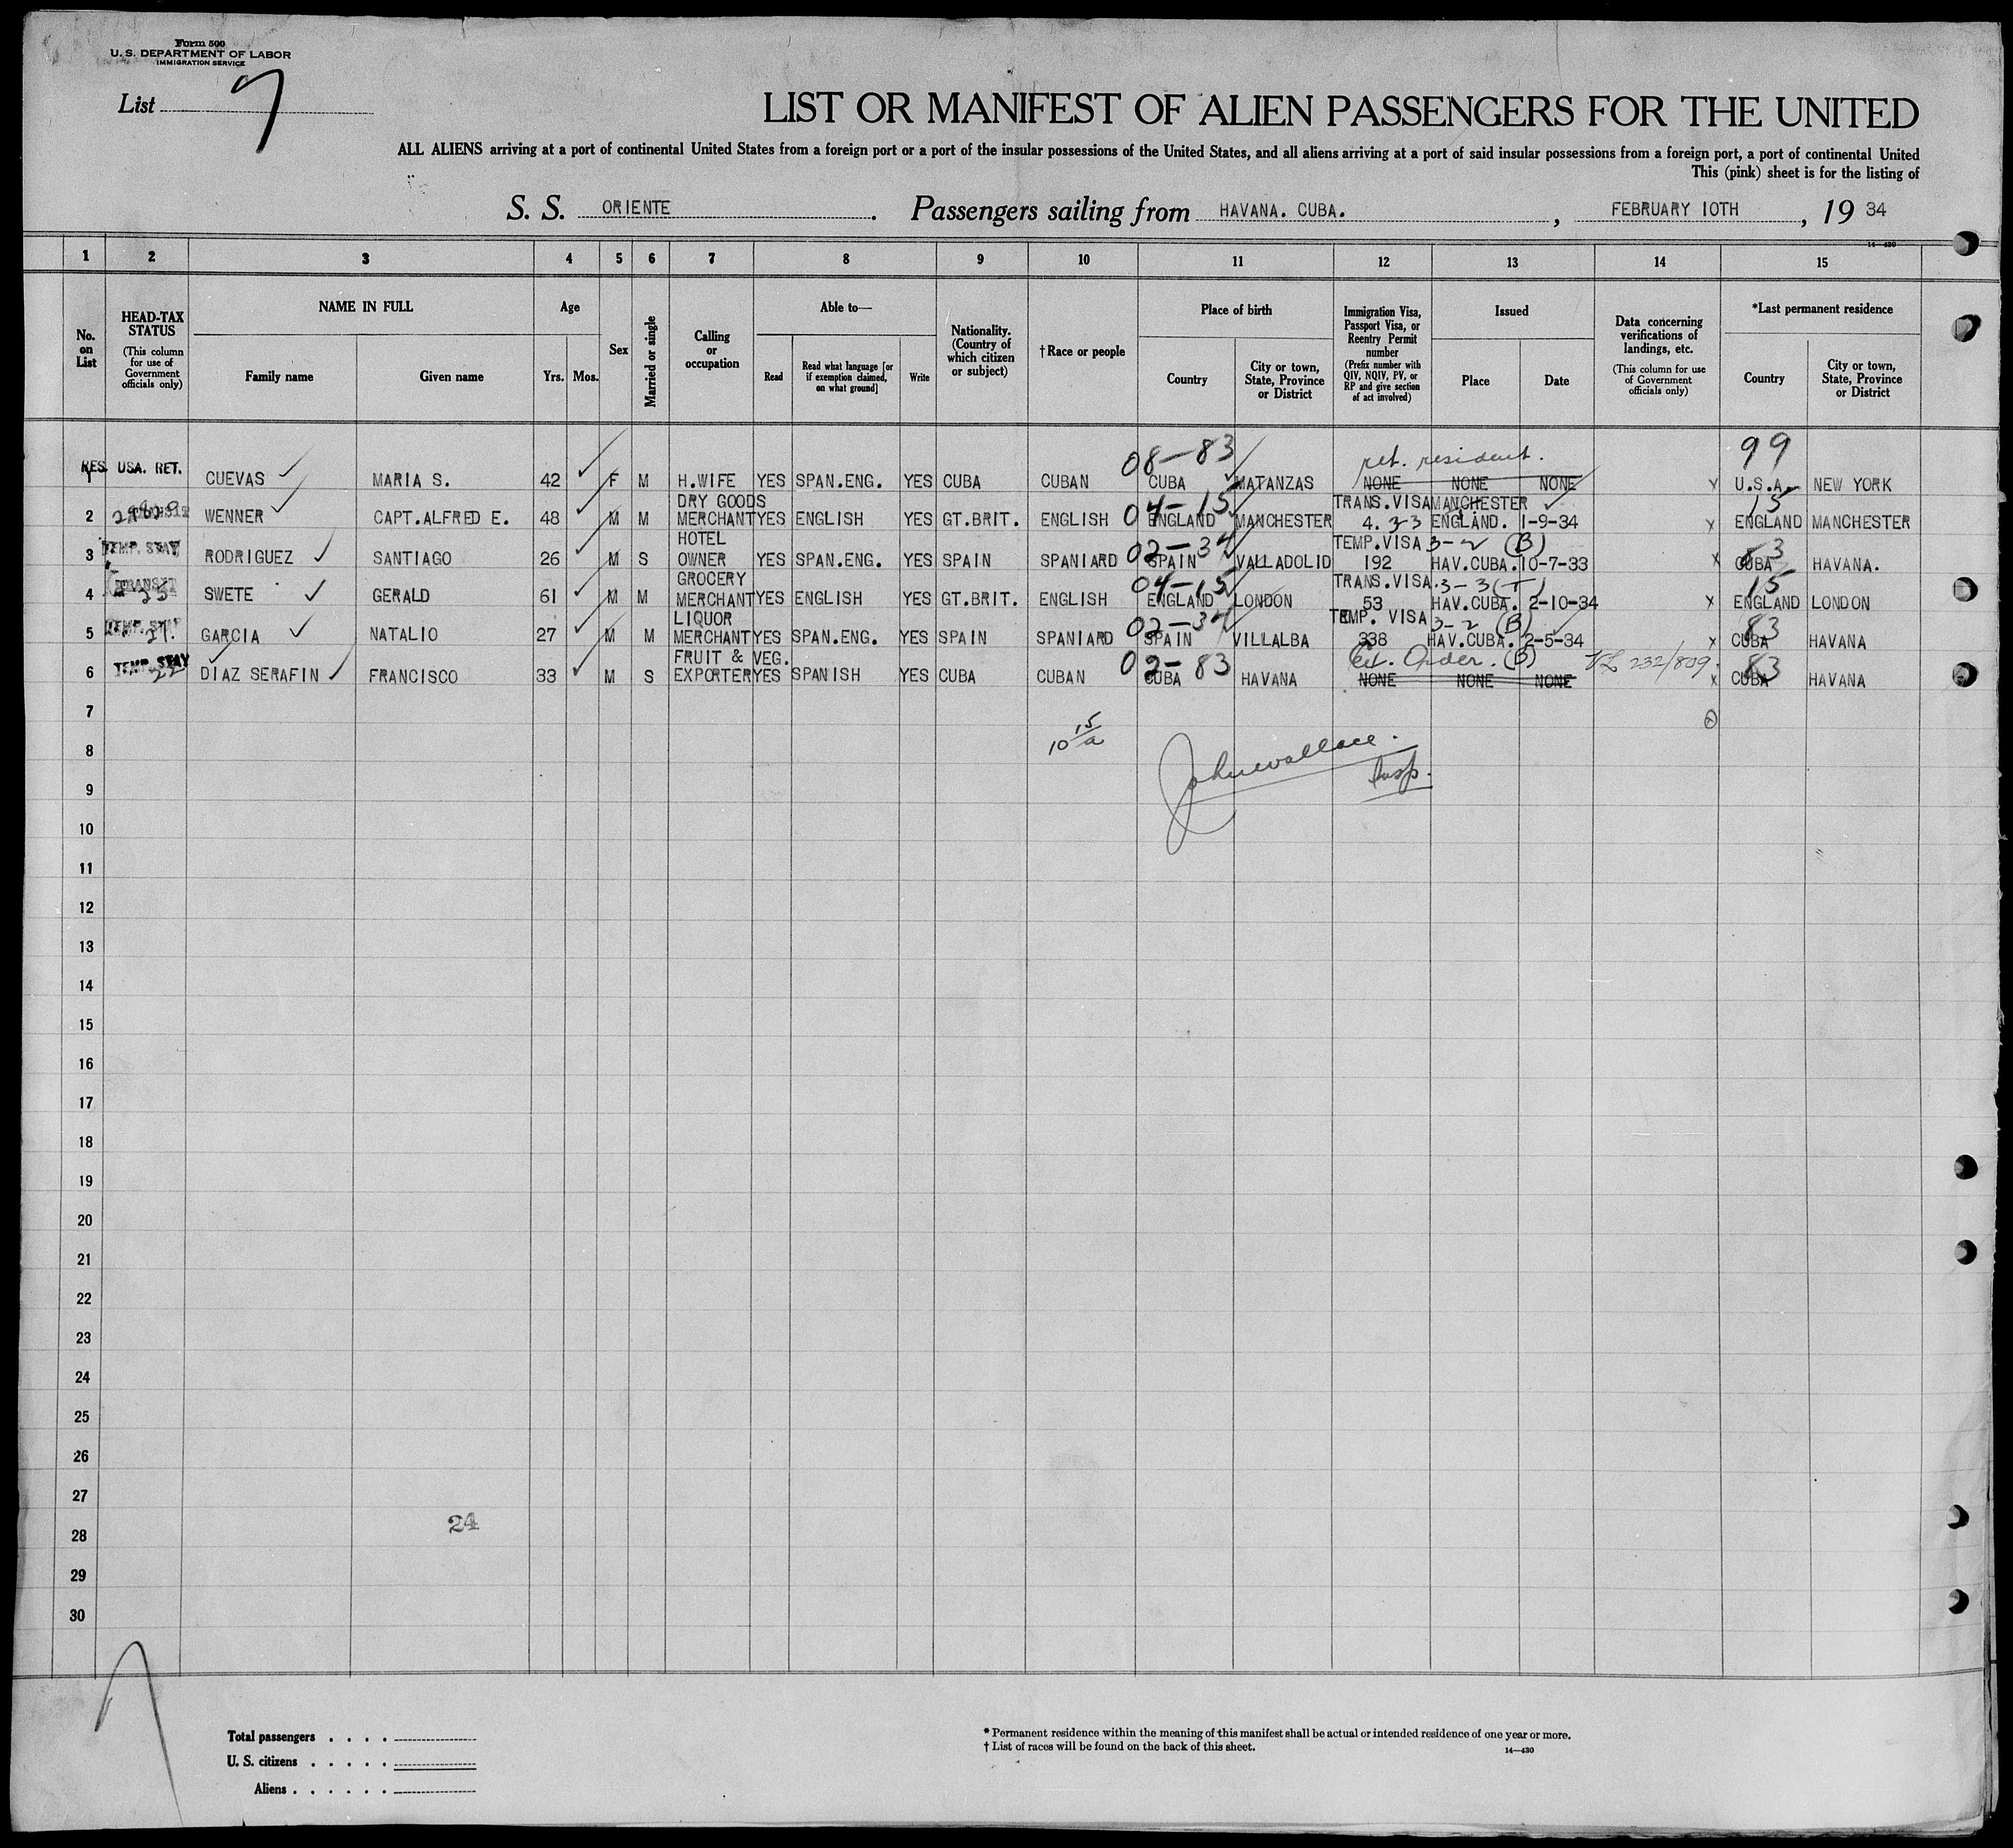 Form 500
U. S. DEPARTMENT OF LABOR
IMMIGRATION SERVICE
List 7
LIST OR MANIFEST OF ALIEN PASSENGERS FOR THE UNITED
ALL ALIENS arriving at a port of continental United States from a foreign port or a port of the insular possessions of the United States, and all aliens arriving at a port of said insular possessions from a foreign port, a port of continental United
This (pink) sheet is for the listing of
S. S. ORIENTE. Passengers sailing from HAVANA. CUBA., FEBRUARY 10TH, 19 34
14—430
1 2 3 4 5 6 7 8 9 10 11 12 13 14 15
No. on List
HEAD-TAX STATUS (This column for use of Government officials only)
NAME IN FULL
Family name
Given name
Age
Yrs. Mos.
Sex
Married or single
Calling or occupation
Able to—
Read
Read what language [or if exemption claimed, on what ground]
Write
Nationality. (Country of which citizen or subject)
† Race or people
Place of birth
Country
City or town, State, Province or District
Immigration Visa, Passport Visa, or Reentry Permit number (Prefix number with QIV, NQIV, PV, or RP and give section of act involved)
Issued
Place
Date
Data concerning verifications of landings, etc. (This column for use of Government officials only)
*Last permanent residence
Country
City or town, State, Province or District
08—83 ret. resident. 99
1 RES. USA. RET. CUEVAS MARIA S. 42 F M H.WIFE YES SPAN.ENG. YES CUBA CUBAN CUBA MATANZAS NONE NONE NONE U.S.A. NEW YORK
DRY GOODS 04—15 TRANS.VISA MANCHESTER 15
2 WENNER CAPT.ALFRED E. 48 M M MERCHANT YES ENGLISH YES GT.BRIT. ENGLISH ENGLAND MANCHESTER 4. 3-3 ENGLAND. 1-9-34 x ENGLAND MANCHESTER
HOTEL 02—34 TEMP.VISA 3-2 (B) 83
3 TEMP. STAY RODRIGUEZ SANTIAGO 26 M S OWNER YES SPAN.ENG. YES SPAIN SPANIARD SPAIN VALLADOLID 192 HAV.CUBA. 10-7-33 x CUBA HAVANA.
GROCERY 04—15 TRANS.VISA. 3-3 (T) 15
4 TRANSIT SWETE GERALD 61 M M MERCHANT YES ENGLISH YES GT.BRIT. ENGLISH ENGLAND LONDON 53 HAV.CUBA. 2-10-34 x ENGLAND LONDON
LIQUOR 02—34 TEMP. VISA 3-2 (B) 83
5 TEMP. STAY GARCIA NATALIO 27 M M MERCHANT YES SPAN.ENG. YES SPAIN SPANIARD SPAIN VILLALBA 338 HAV.CUBA. 2-5-34 x CUBA HAVANA
FRUIT & VEG. 02—83 Ex. Order. (B) VL 232/809. 83
6 TEMP. STAY DIAZ SERAFIN FRANCISCO 33 M S EXPORTER YES SPANISH YES CUBA CUBAN CUBA HAVANA NONE NONE NONE x CUBA HAVANA
7
10 15/a
John Wallace.
Insp.
8
9
10
11
12
13
14
15
16
17
18
19
20
21
22
23
24
25
26
27
24
28
29
30
Total passengers . . . .
U. S. citizens . . . . .
Aliens . . . . . .
* Permanent residence within the meaning of this manifest shall be actual or intended residence of one year or more.
† List of races will be found on the back of this sheet.
14—430